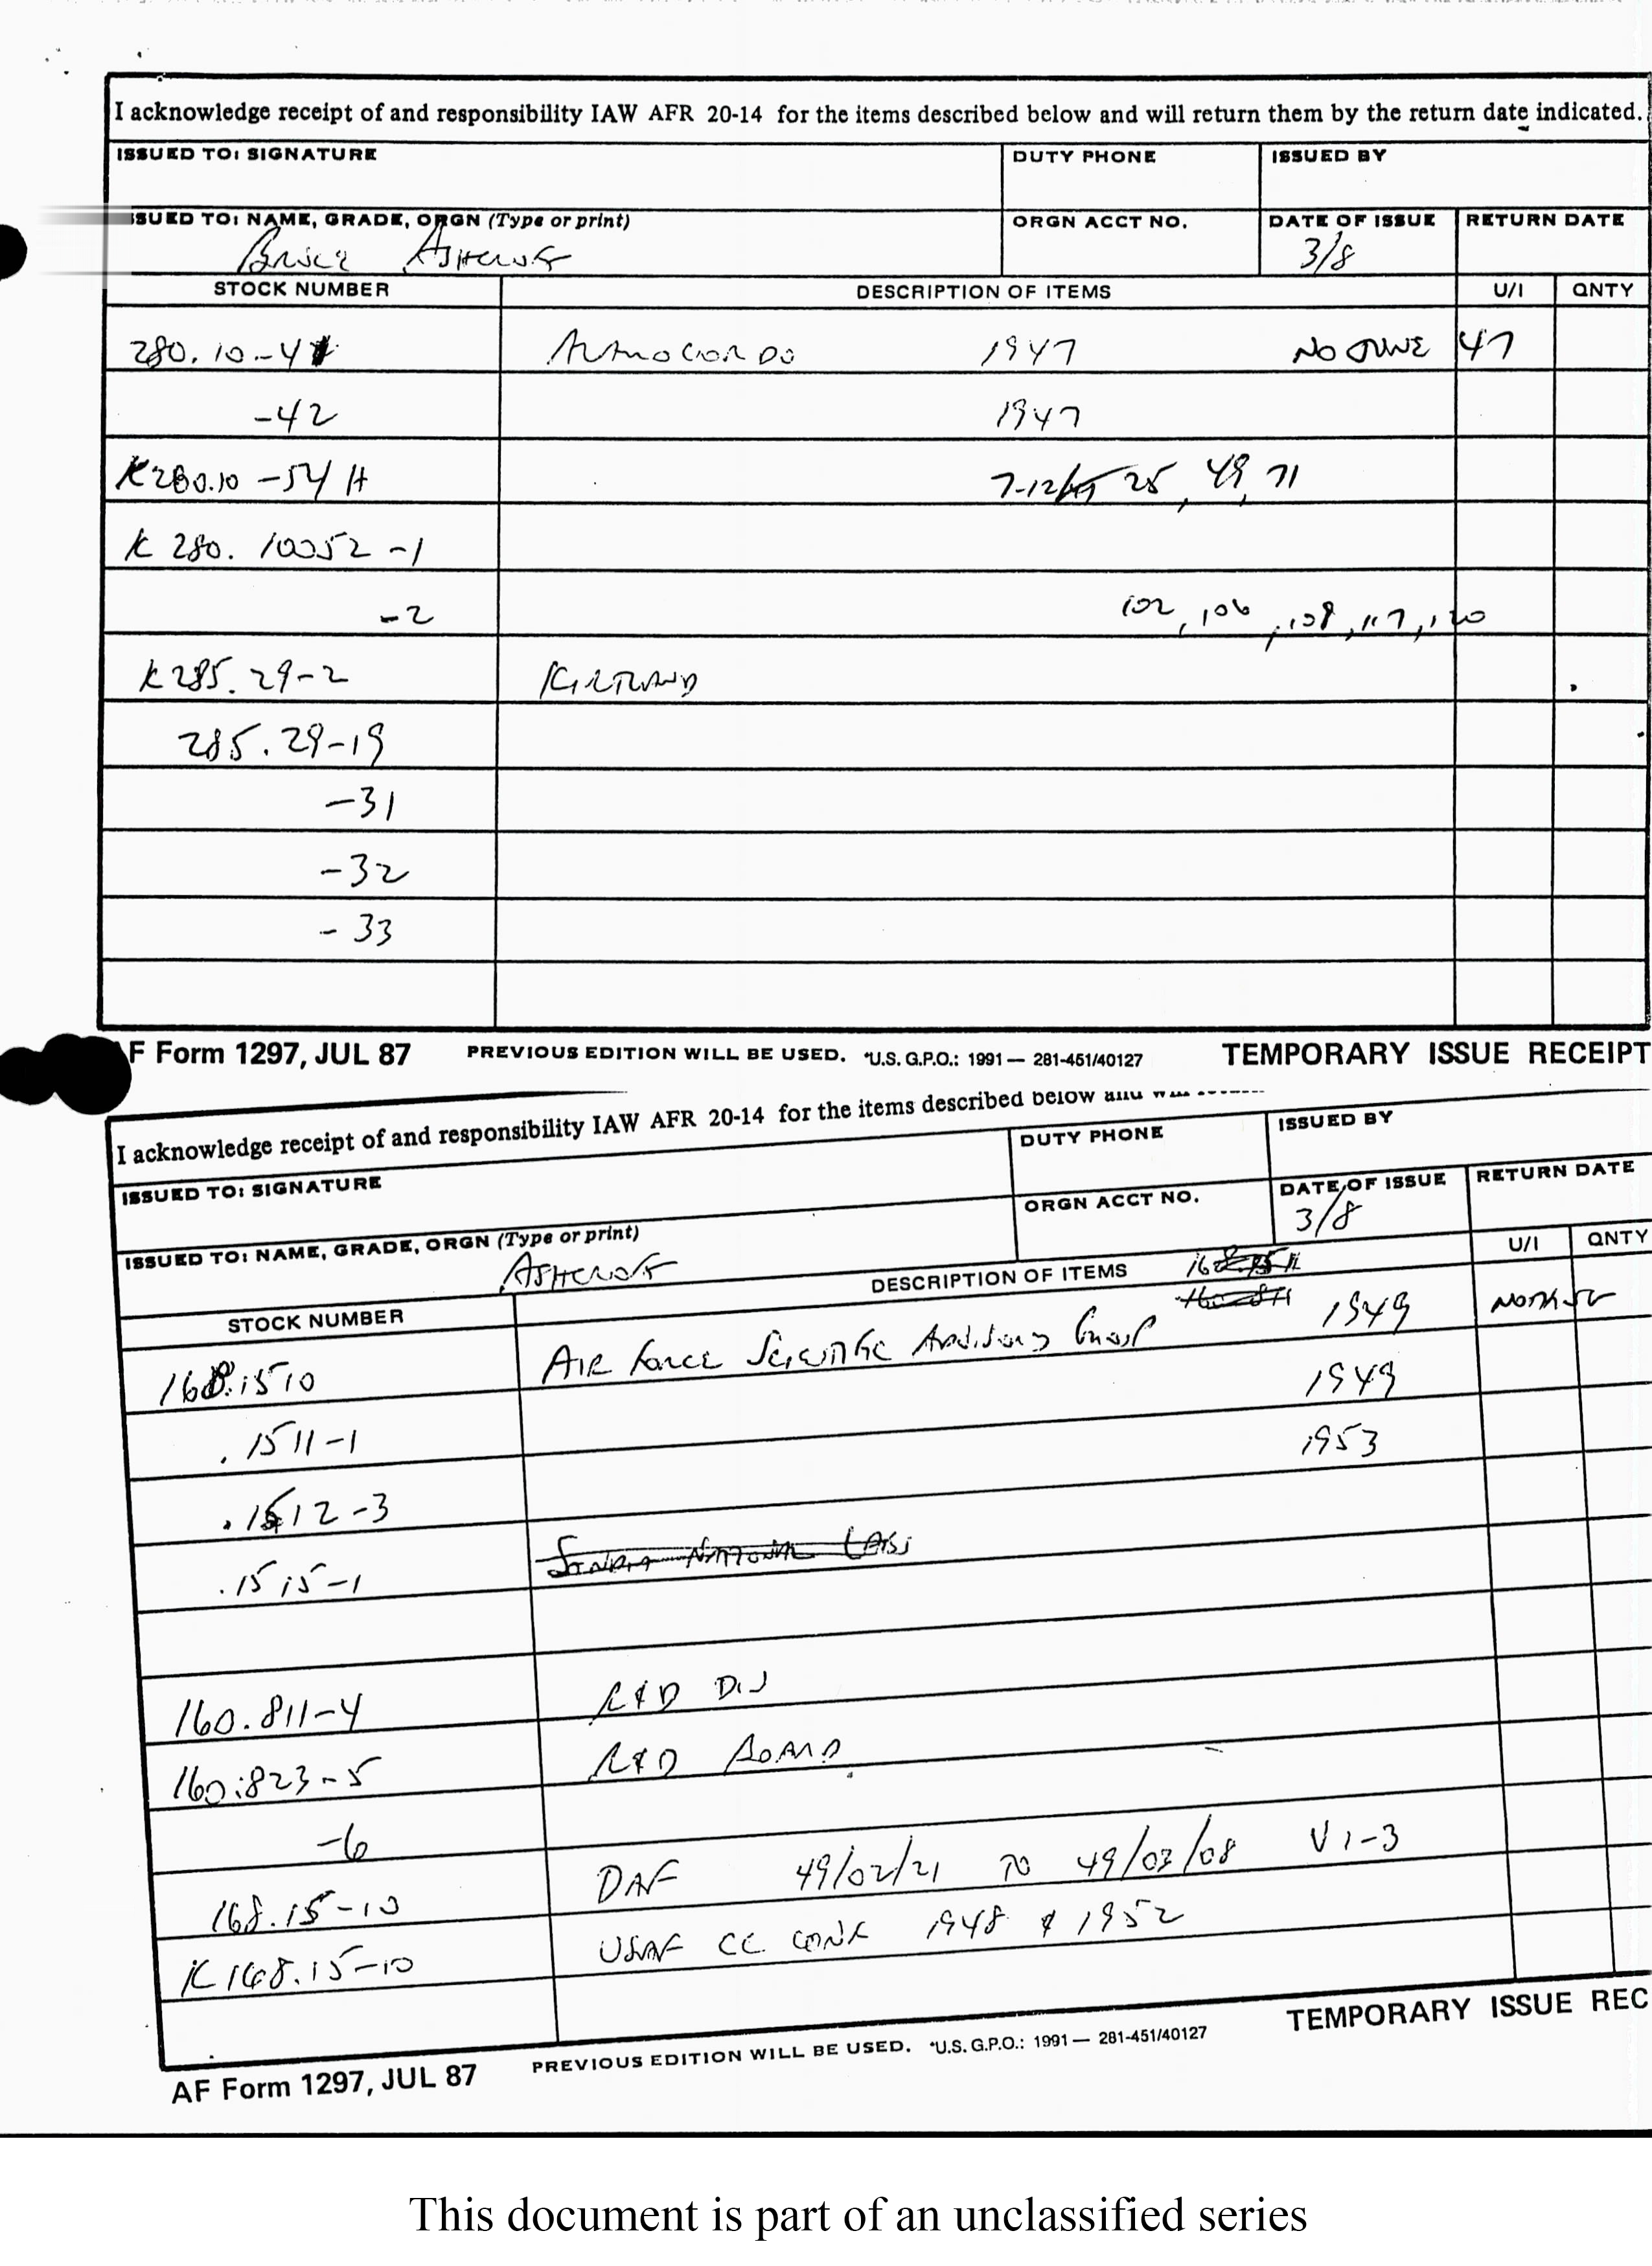 I acknowledge receipt of and responsibility IAW AFR 20-14 for the items described below and will return them by the return date indicated.
ISSUED TO: SIGNATURE DUTY PHONE ISSUED BY
ISSUED TO: NAME, GRADE, ORGN (Type or print) ORGN ACCT NO. DATE OF ISSUE RETURN DATE
Bruce Ashcroft 3/8
STOCK NUMBER DESCRIPTION OF ITEMS U/I QNTY
280.10-4 Alamogordo 1947 NO JUNE 47
-42 1947
K280.10-54 H 25, 49, 71
K 280.10052-1
-2 102, 106, 108, 117, 120
K 285.29-2 KIRTLAND
285.29-19
-31
-32
-33
AF Form 1297, JUL 87 PREVIOUS EDITION WILL BE USED. *U.S. G.P.O.: 1991 — 281-451/40127 TEMPORARY ISSUE RECEIPT
I acknowledge receipt of and responsibility IAW AFR 20-14 for the items described below and will
ISSUED TO: SIGNATURE DUTY PHONE ISSUED BY
ISSUED TO: NAME, GRADE, ORGN (Type or print) ORGN ACCT NO. DATE OF ISSUE RETURN DATE
ASHCROFT 3/8
STOCK NUMBER DESCRIPTION OF ITEMS U/I QNTY
168.1510 AIR Force Scientific Advisory Group 1949
.1511-1 1949
.1512-3 1953
.1515-1 Sandia National Labs
160.811-4 R&D Div
160.823-5 R&D BOARD
-6
168.15-10 DAF 49/02/21 TO 49/03/08 V 1-3
K168.15-10 USAF CC CONF 1948 & 1952
AF Form 1297, JUL 87 PREVIOUS EDITION WILL BE USED. *U.S. G.P.O.: 1991 — 281-451/40127 TEMPORARY ISSUE REC
This document is part of an unclassified series